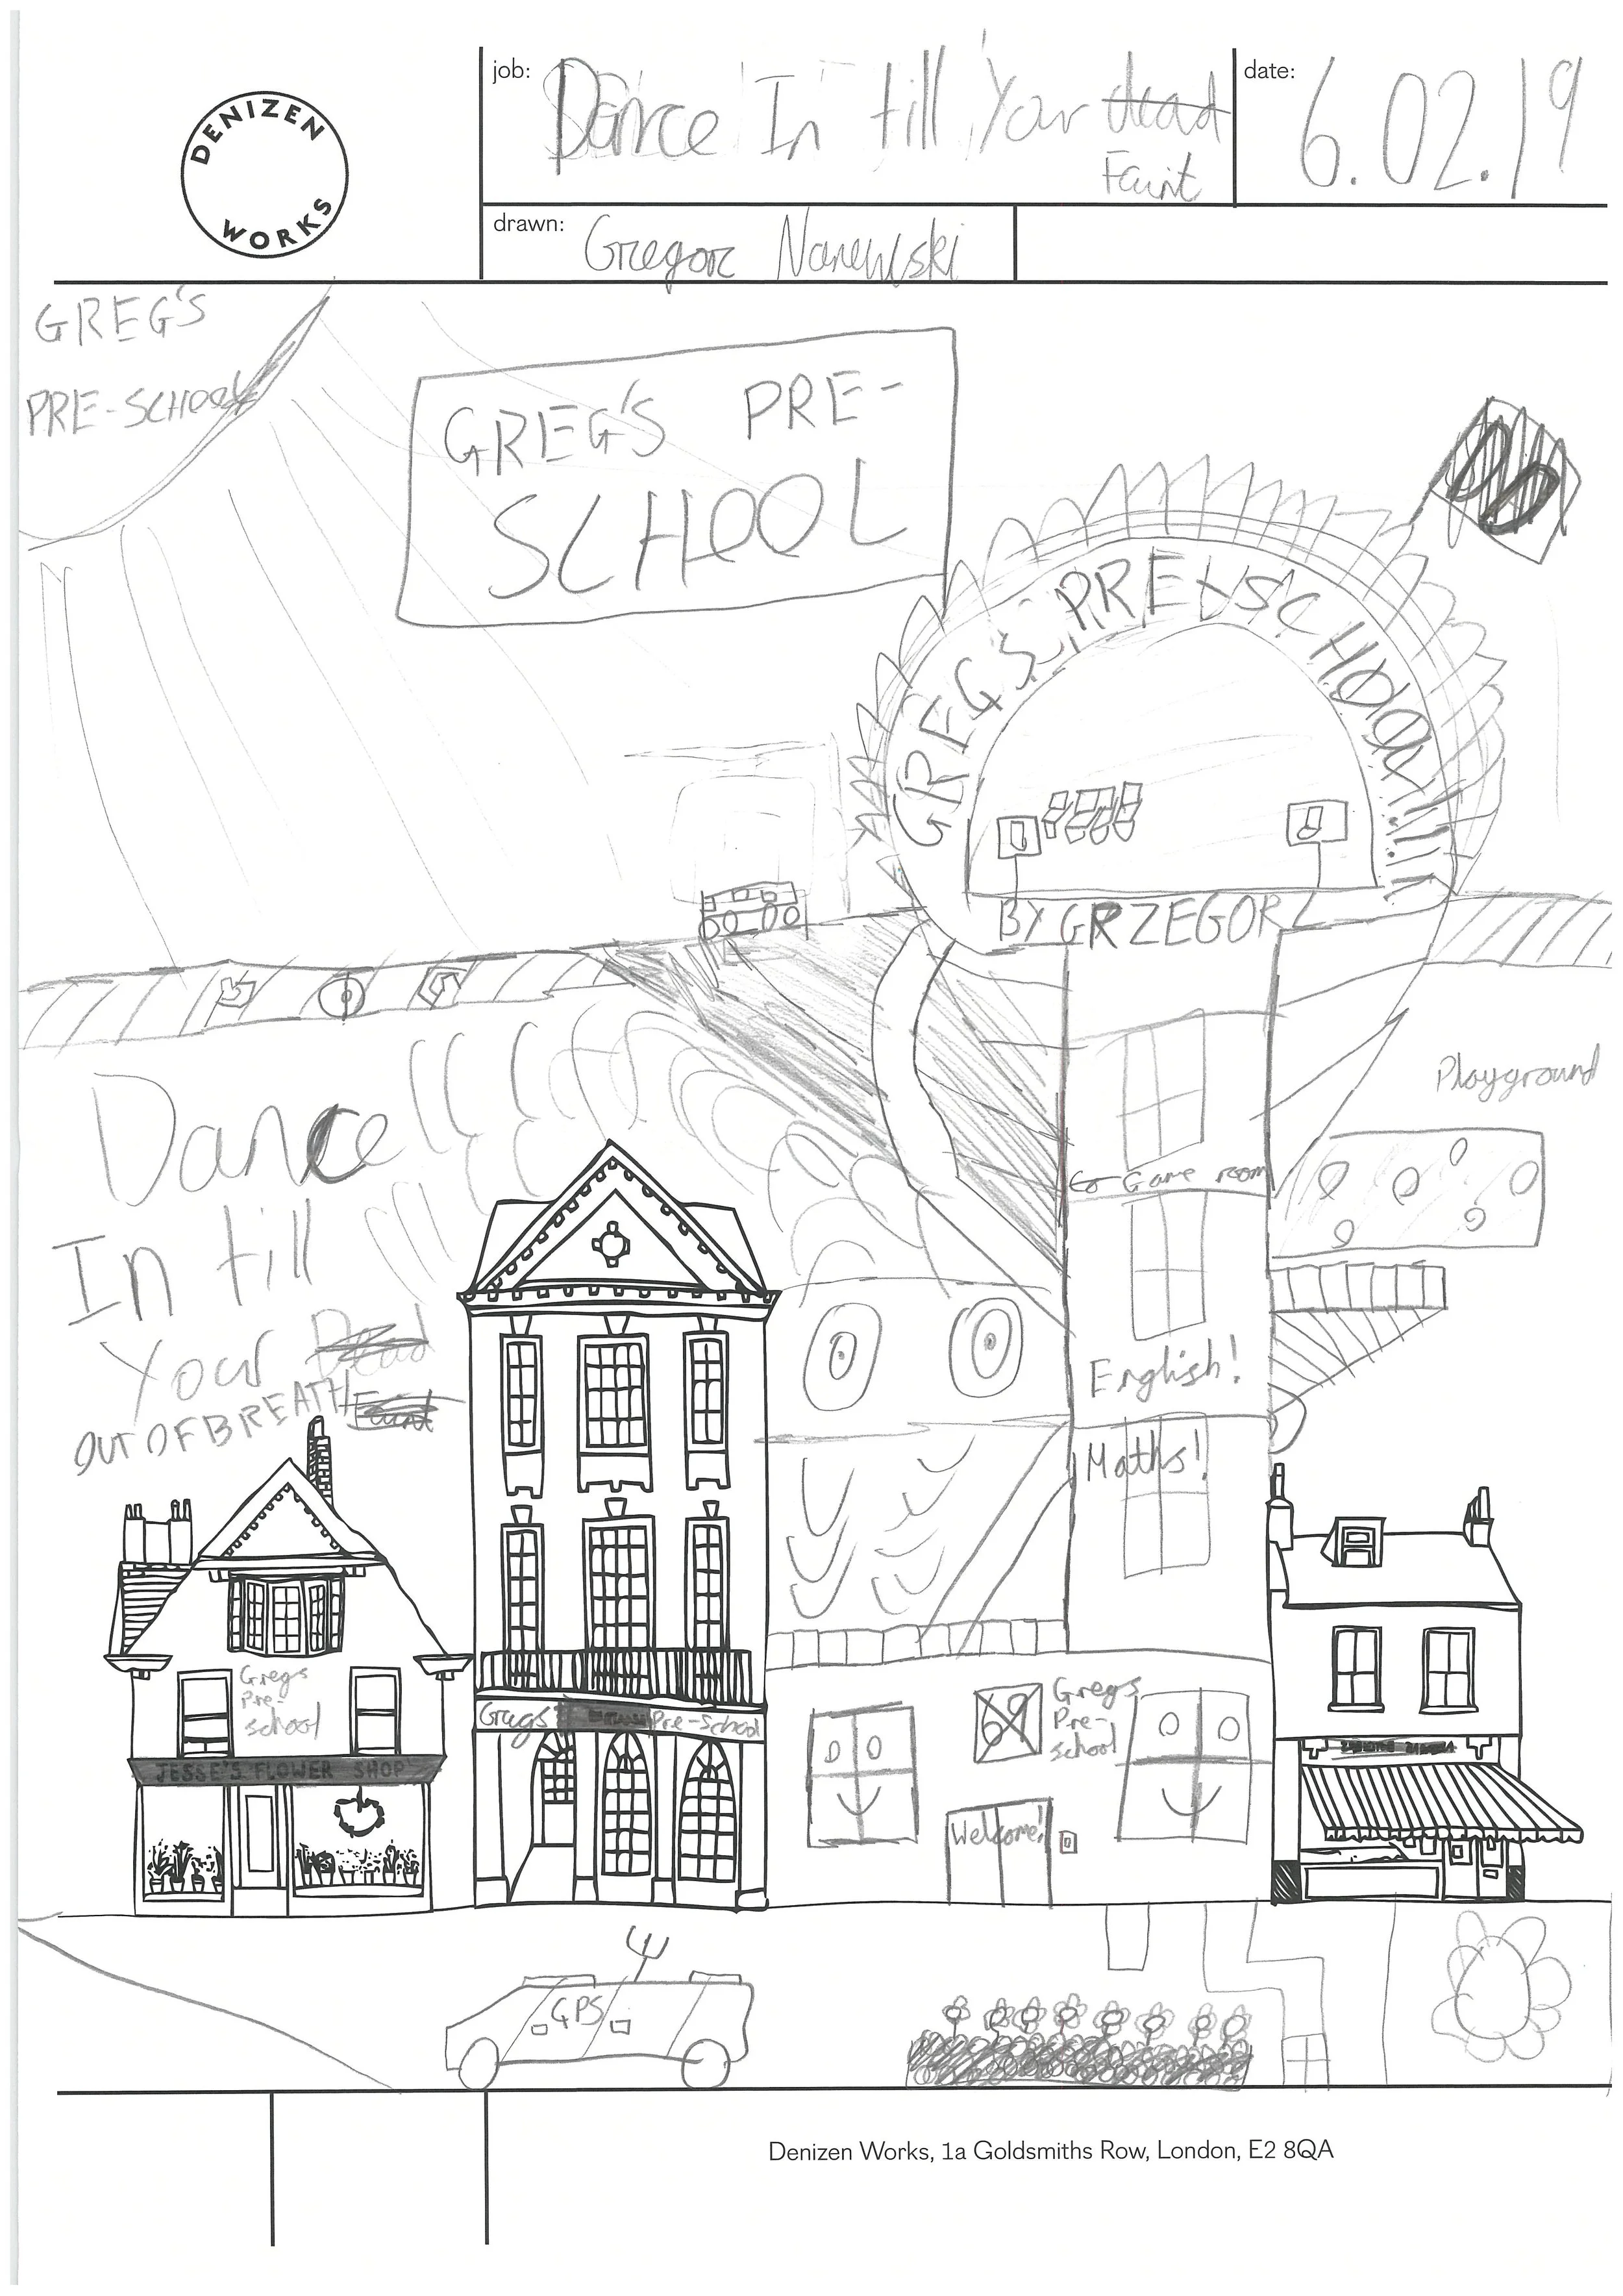 DENIZEN
WORKS
job: Dance In till Your dead
Faint
date: 6.02.19
drawn: Gregor
GREG'S
PRE-SCHOOL
GREG'S PRE-
SCHOOL
GREG'S PRE-SCHOOL!!!
BY GRZEGORZ
Playground
Dance
In till
Your Dead
OUT OF BREATH Faint
Game room
English!
Maths!
Gregs
Pre-
school
Gregs Pre-School
Gregs
Pre-
school
JESSE'S FLOWER SHOP
Welcome!
GPS
Denizen Works, 1a Goldsmiths Row, London, E2 8QA